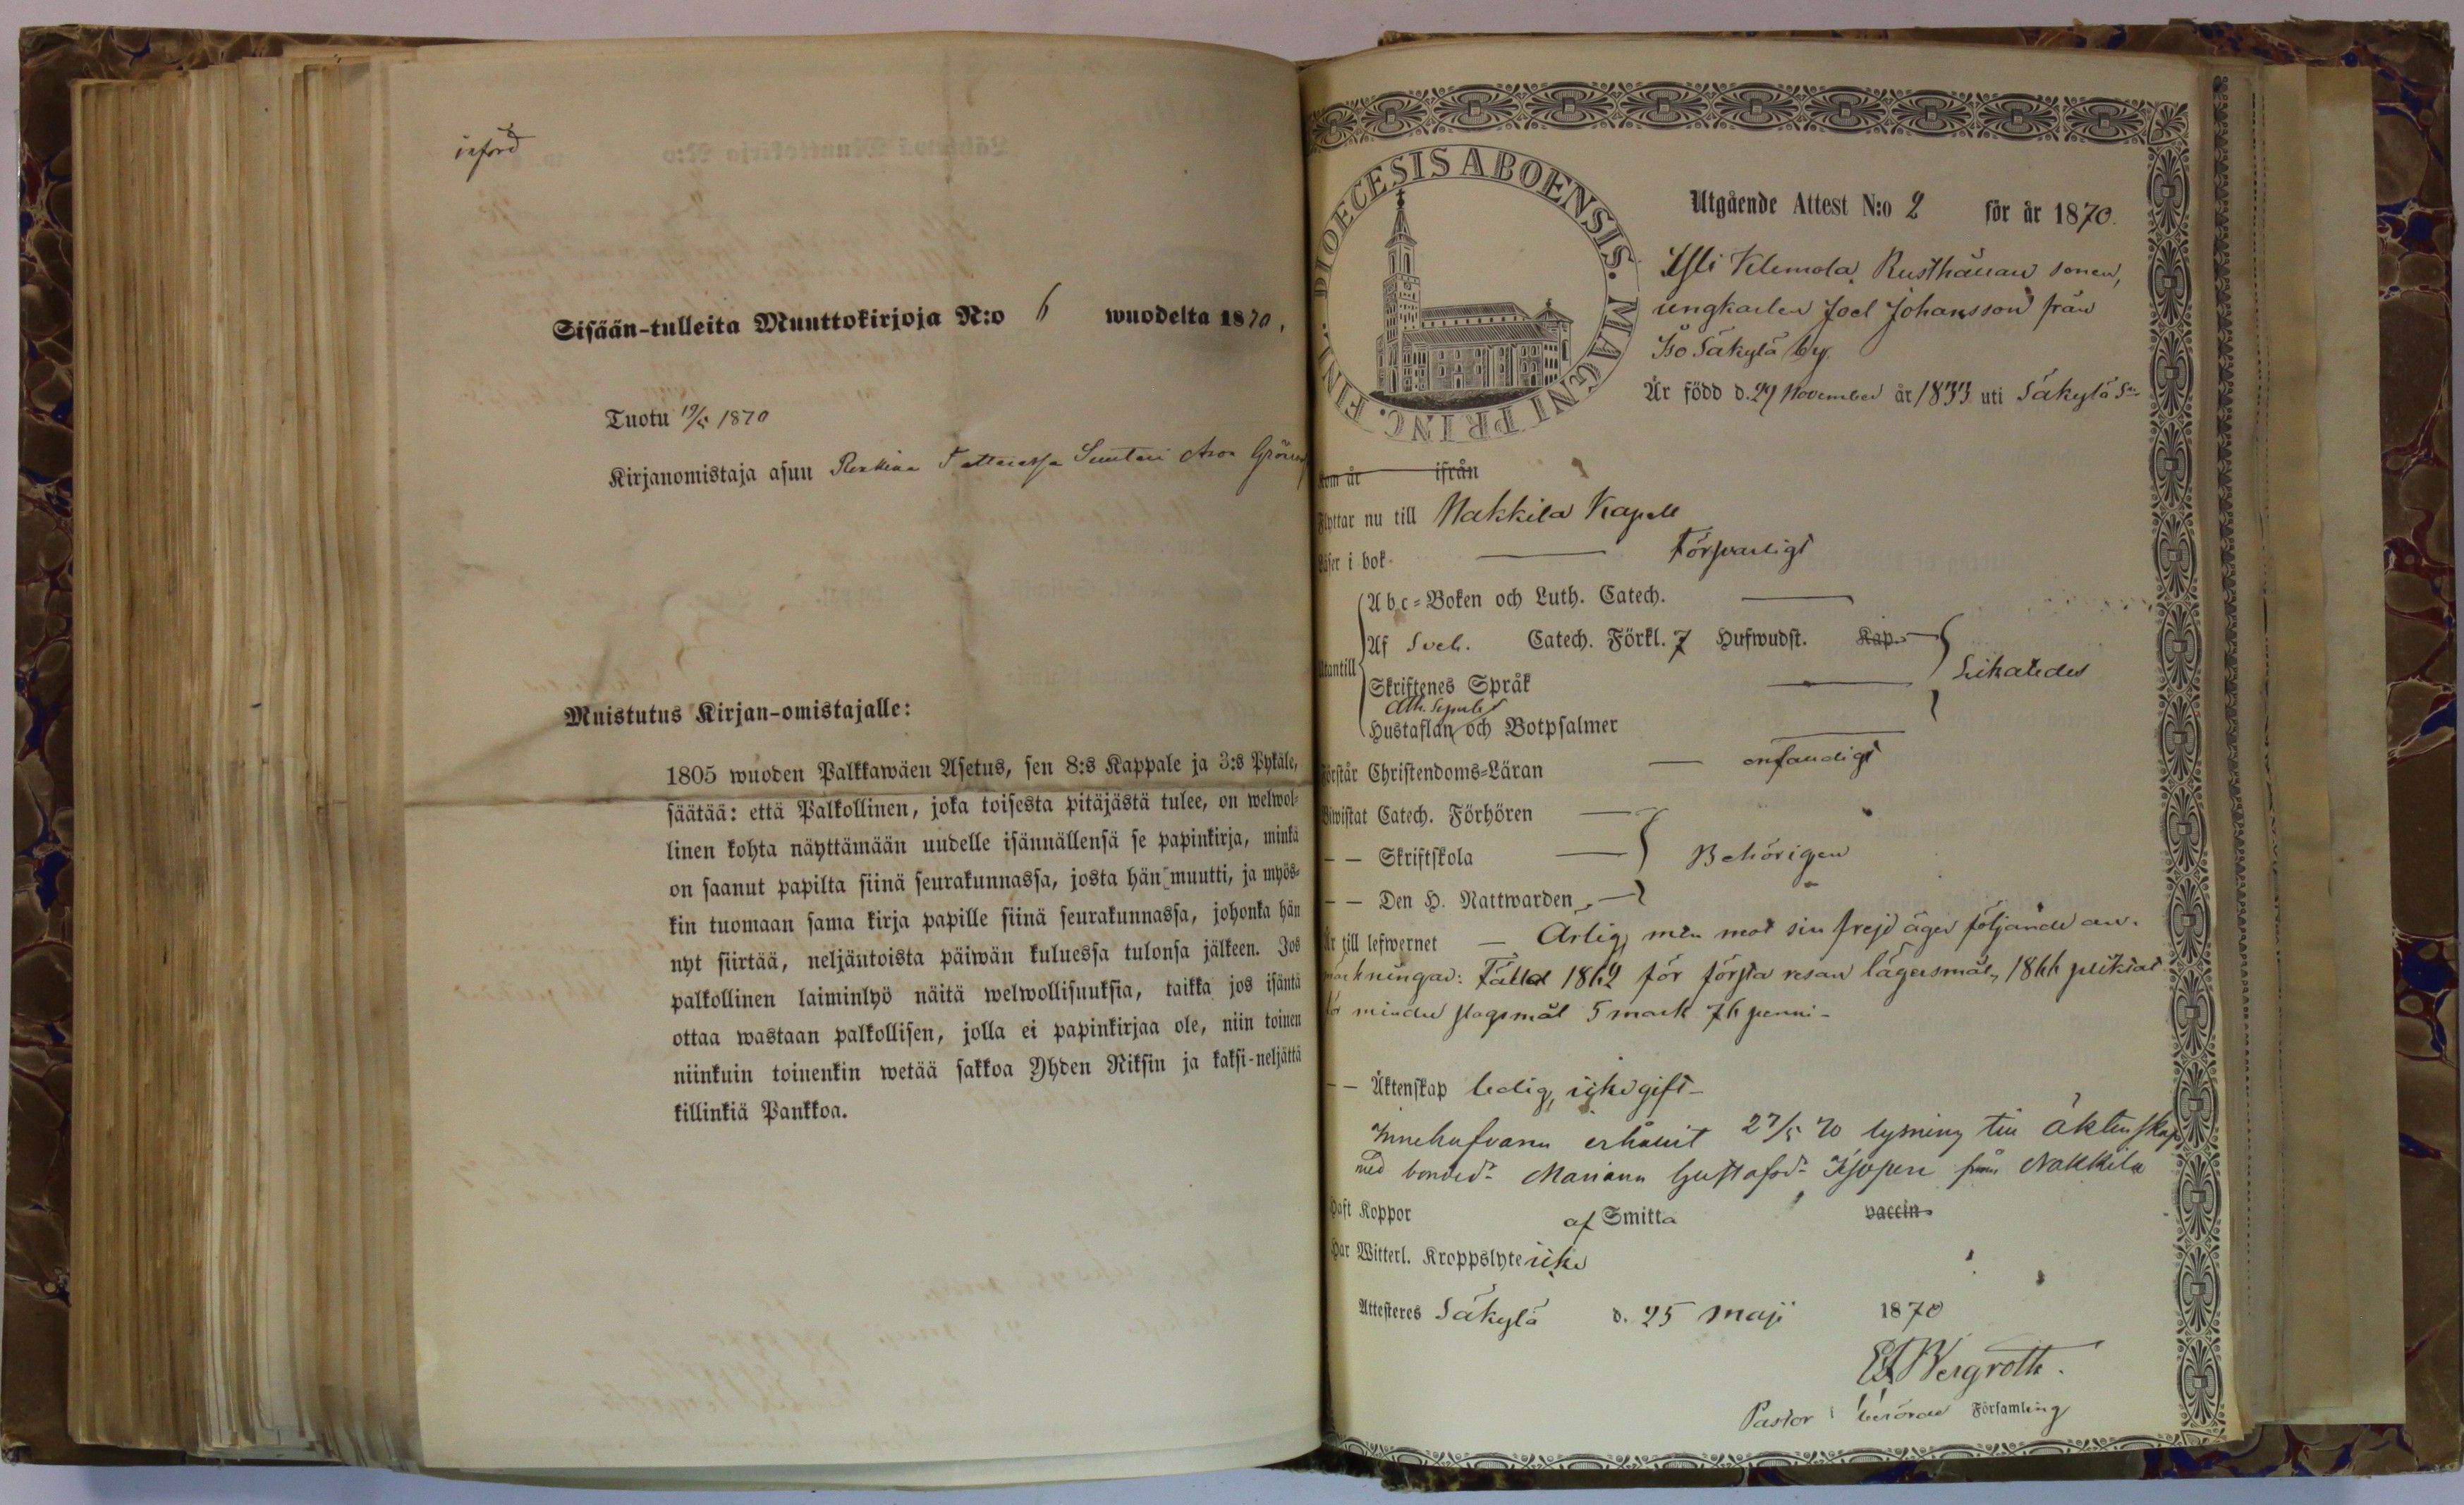 införd
Sisään-tulleita Muuttokirjoja N:o 6 wuodelta 1870,
Tuotu 19/5 1870
Kirjanomistaja asuu Suutari
Muistutus Kirjan-omistajalle:
1805 wuoden Palkkawäen Asetus, sen 8:s Kappale ja 3:s Pykäle,
säätää: että Palkollinen, joka toisesta pitäjästä tulee, on welwol-
linen kohta näyttämään uudelle isännällensä se papinkirja, minkä
on saanut papilta siinä seurakunnassa, josta hän muutti, ja myös-
kin tuomaan sama kirja papille siinä seurakunnassa, johonka hän
nyt siirtää, neljäntoista päiwän kuluessa tulonsa jälkeen. Jos
palkollinen laiminlyö näitä welwollisuuksia, taikka jos isäntä
ottaa wastaan palkollisen, jolla ei papinkirjaa ole, niin toinen
niinkuin toinenkin wetää sakkoa Yhden Riksin ja kaksi-neljättä
killinkiä Pankkoa.
DIOECESIS ABOENSIS. MAGNI PRINC. FINL.
Utgående Attest N:o 2 för år 1870.
Yli Klemola Rusthållare sonen,
ungkarlen Joel Johansson från
Iso Säkylä by.
Är född d. 29 November år 1833 uti Säkylä Sn
Kom år ifrån
Flyttar nu till Nakkila Kapell
Läser i bok Försvarligt
Abc-Boken och Luth. Catech.
Af Sveb. Catech. Förkl. 7 Hufwudst. Kap.
Utantill
Skriftenes Språk Likaledes
Ath. Symb.
Hustaflan och Botpsalmer
Förstår Christendoms-Läran
Biwistat Catech. Förhören
— — Skriftskola Behörigen
— — Den H. Nattwarden
Är till lefwernet — Ärlig, men mot sin frejd äger följande an-
märkningar: Fälld 1862 för första resan lägersmål, 1866 pliktat
för mindre slagsmål 5 mark 76 penni –
— — Äktenskap ledig, icke gift –
Innehafvaren erhållit 27/5 70 lysning till äktenskap
med bonded. Mariana Gustafsd. från Nakkila
Haft Koppor af Smitta vaccin
Har Witterl. Kroppslyte icke
Attesteres Säkylä d. 25 Maji 1870
Bergroth.
Pastor i berörde Församling